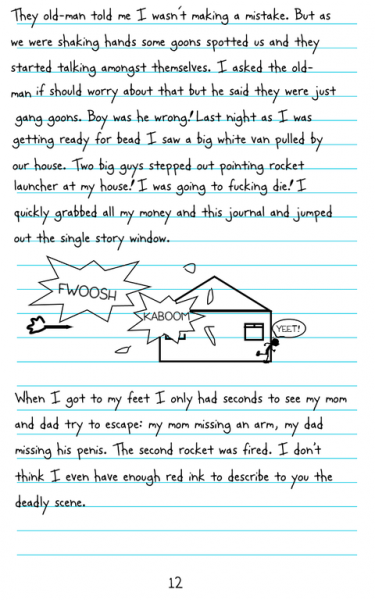 They old-man told me I wasn't making a mistake. But as
we were shaking hands some goons spotted us and they
started talking amongst themselves. I asked the old-
man if should worry about that but he said they were just
gang goons. Boy was he wrong! Last night as I was
getting ready for bead I saw a big white van pulled by
our house. Two big guys stepped out pointing rocket
launcher at my house! I was going to fucking die! I
quickly grabbed all my money and this journal and jumped
out the single story window.
FWOOSH
KABOOM
YEET!
When I got to my feet I only had seconds to see my mom
and dad try to escape: my mom missing an arm, my dad
missing his penis. The second rocket was fired. I don't
think I even have enough red ink to describe to you the
deadly scene.
12